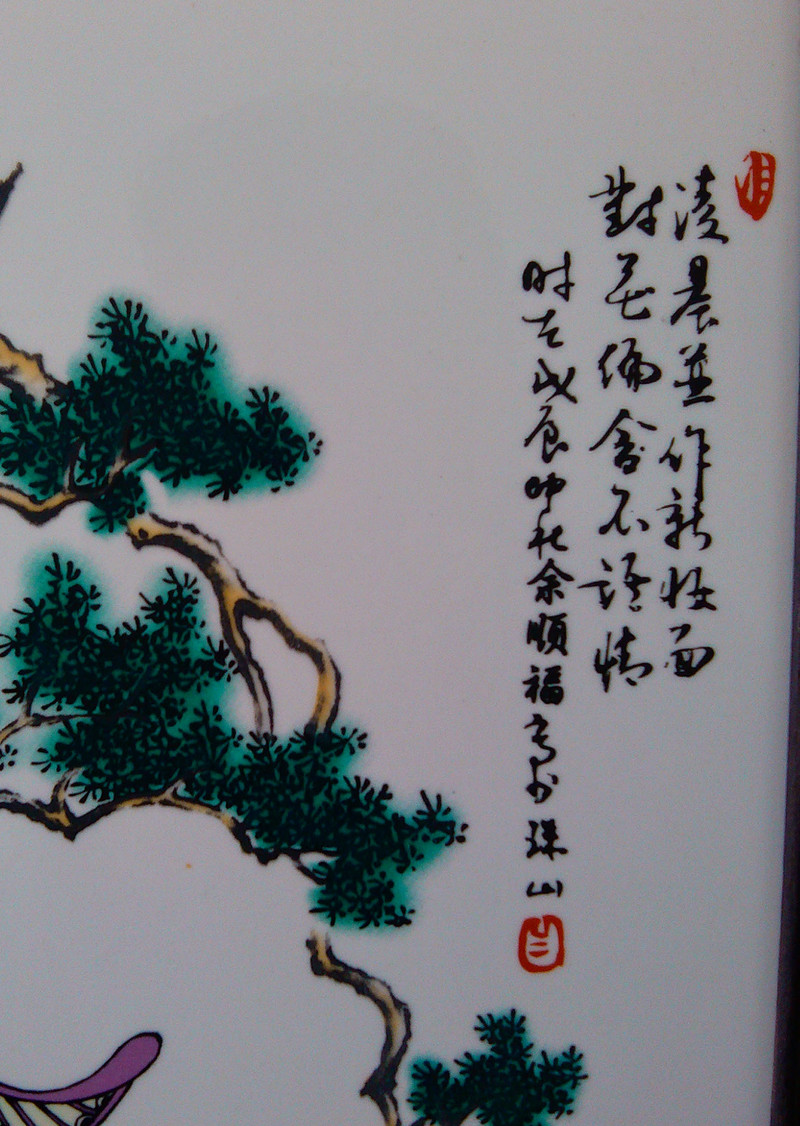 凌晨並作新妝面
對花偏含不語情
时在戊辰仲秋余順福写於珠山